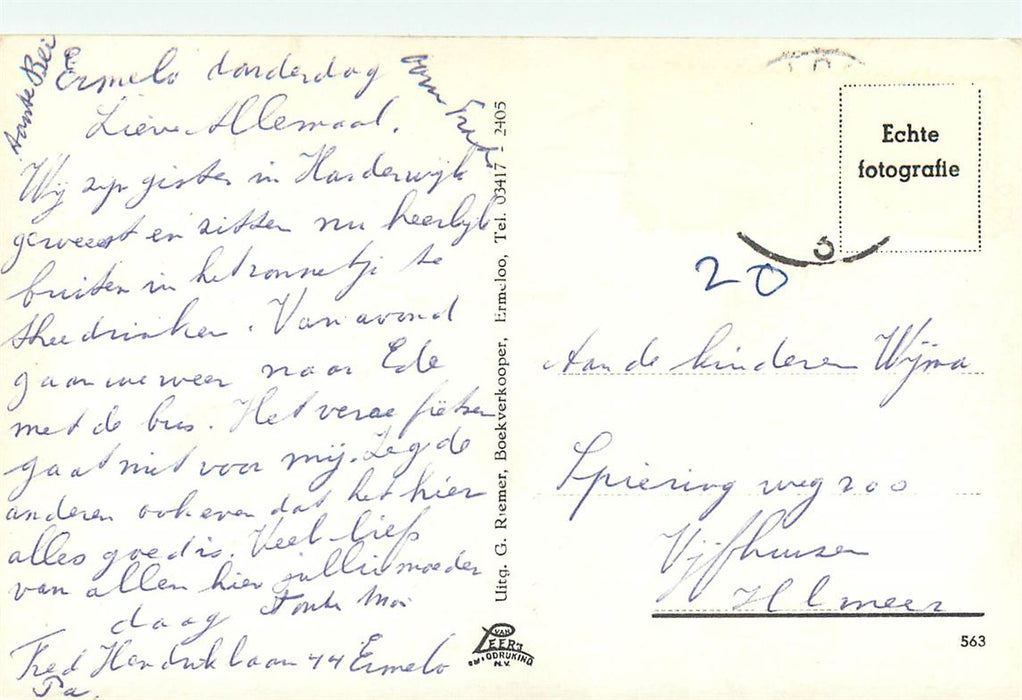 Ermelo donderdag
Lieve Allemaal.
Wij zijn gisteren in Harderwijk
geweest en zitten nu heerlijk
buiten in het zonnetje te
theedrinken. Vanavond
gaan we weer naar Ede
met de bus. Het verre fietsen
gaat niet voor mij. Zeg de
anderen ook even dat het hier
alles goed is. Veel liefs
van allen hier jullie moeder
daag Tante
Fred Hendriklaan 44 Ermelo
Pa.
Tante
oom
Uitg. G. Riemer, Boekverkooper, Ermeloo, Tel. 03417 - 2405
VAN
LEER'S
N.V.
Echte
fotografie
20
Aan de kinderen Wijma
Spieringweg 200
Vijfhuizen
H l meer
563